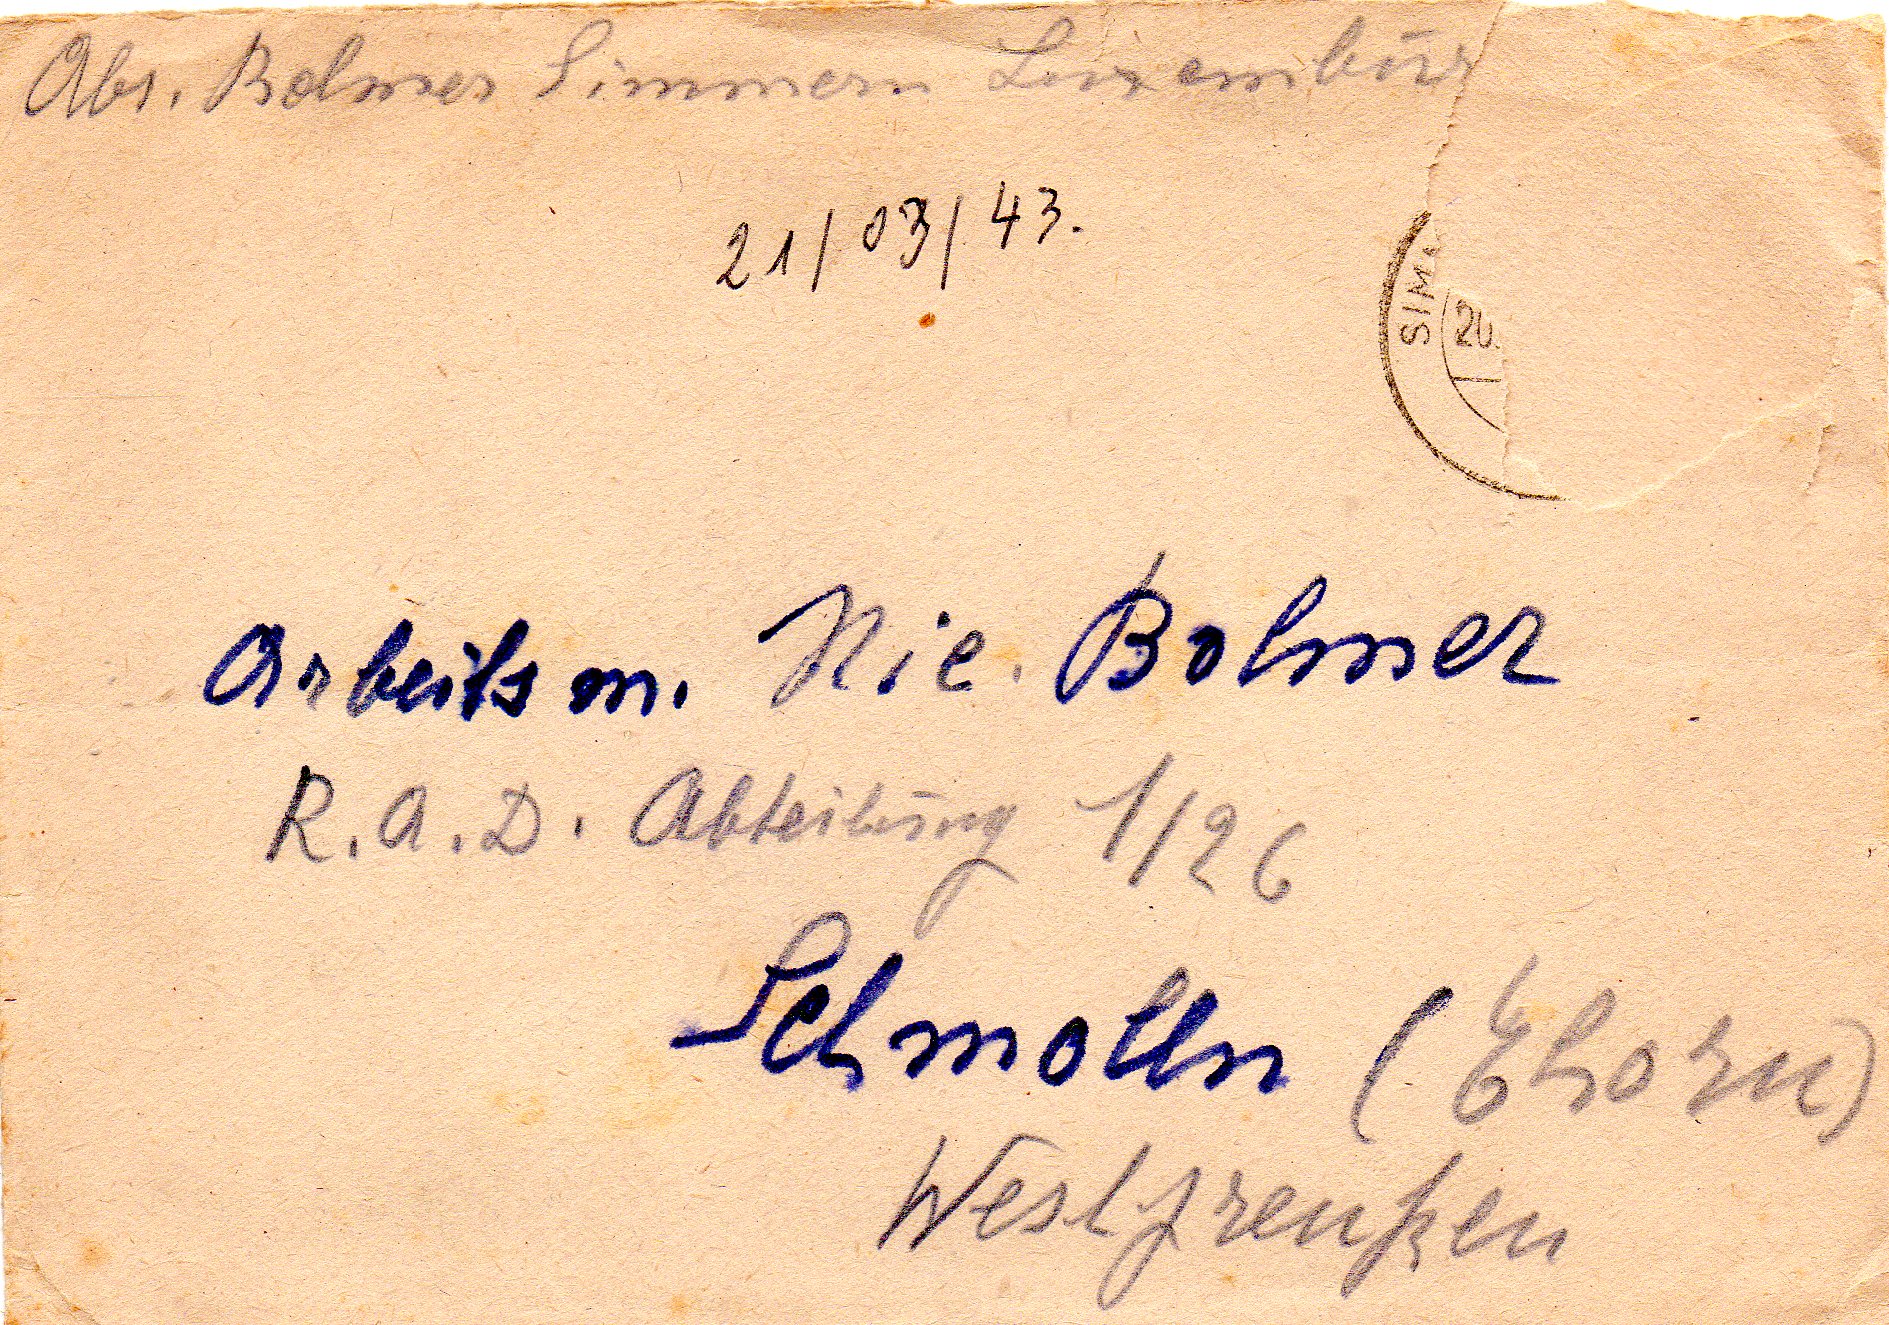 Abs. Bolmer Simmern Luxembur
21/03/43.
SIM
20.
Arbeitsm. Nic. Bolmer
R.A.D. Abteilung 1/26
Schmolln (Thorn)
Westpreußen